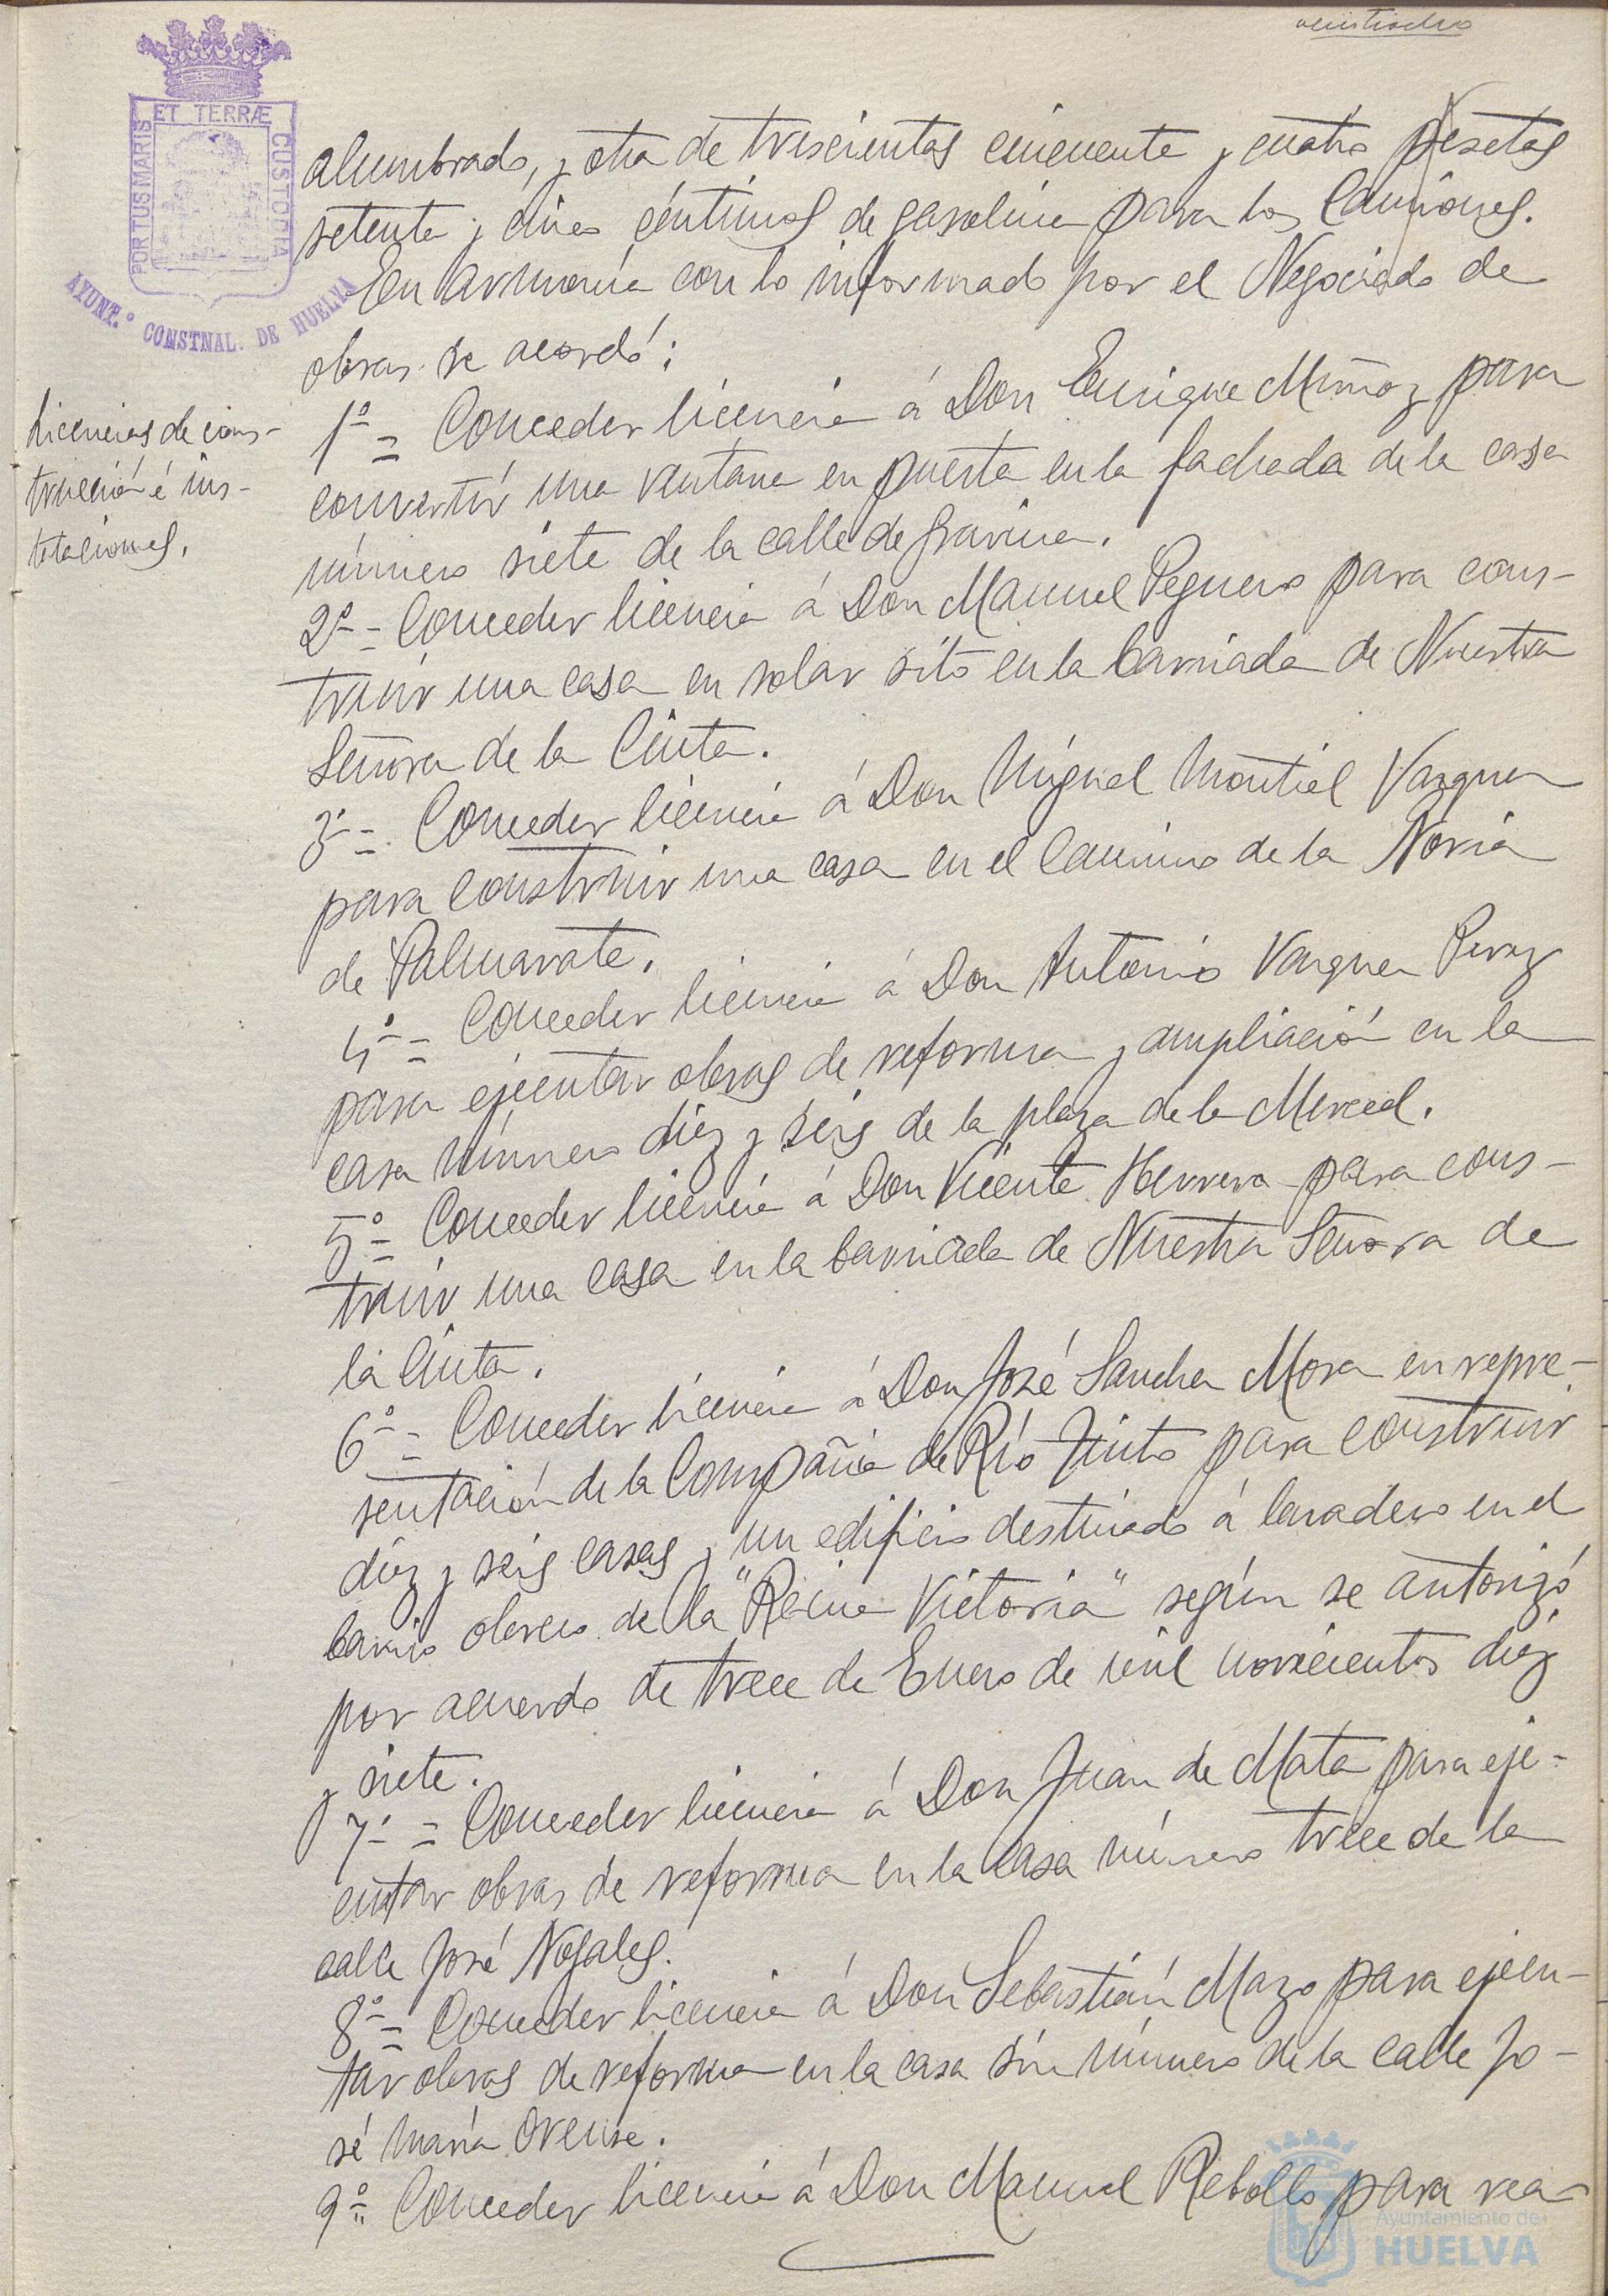 veintiocho
PORTUS MARIS ET TERRÆ CUSTODIA
AYUNT.º CONSTNAL. DE HUELVA
alumbrado, y otra de trescientas cincuenta y cuatro pesetas
setenta y cinco céntimos de gasolina para los Camiones.
En armonía con lo informado por el Negociado de
obras se acordó:
Licencias de cons-
trucción é ins-
talaciones.
1º = Conceder licencia á Don Enrique Muñoz para
convertir una ventana en puerta en la fachada de la casa
número siete de la calle de Gravina.
2º = Conceder licencia á Don Manuel Peguero para cons-
truir una casa en solar sito en la barriada de Nuestra
Señora de la Cinta.
3º = Conceder licencia á Don Miguel Montiel Vazquez
para construir una casa en el Camino de la Noria
de Palmarate.
4º = Conceder licencia á Don Antonio Vazquez Perez
para ejecutar obras de reforma y ampliación en la
casa número diez y seis de la plaza de la Merced.
5º = Conceder licencia á Don Vicente Herrera para cons-
truir una casa en la barriada de Nuestra Señora de
la Cinta.
6º = Conceder licencia á Don José Sanchez Mora en repre-
sentación de la Compañia de Río Tinto para construir
diez y seis casas y un edificio destinado á lavadero en el
barrio obrero de la "Reina Victoria" según se autorizó
por acuerdo de trece de Enero de mil novecientos diez
y siete.
7º = Conceder licencia á Don Juan de Mata para eje-
cutar obras de reforma en la casa número trece de la
calle José Nogales.
8º = Conceder licencia á Don Sebastián Mazo para ejecu-
tar obras de reforma en la casa sin número de la calle Jo-
sé María Orense.
9º = Conceder licencia á Don Manuel Rebollo para rea-
Ayuntamiento de
HUELVA